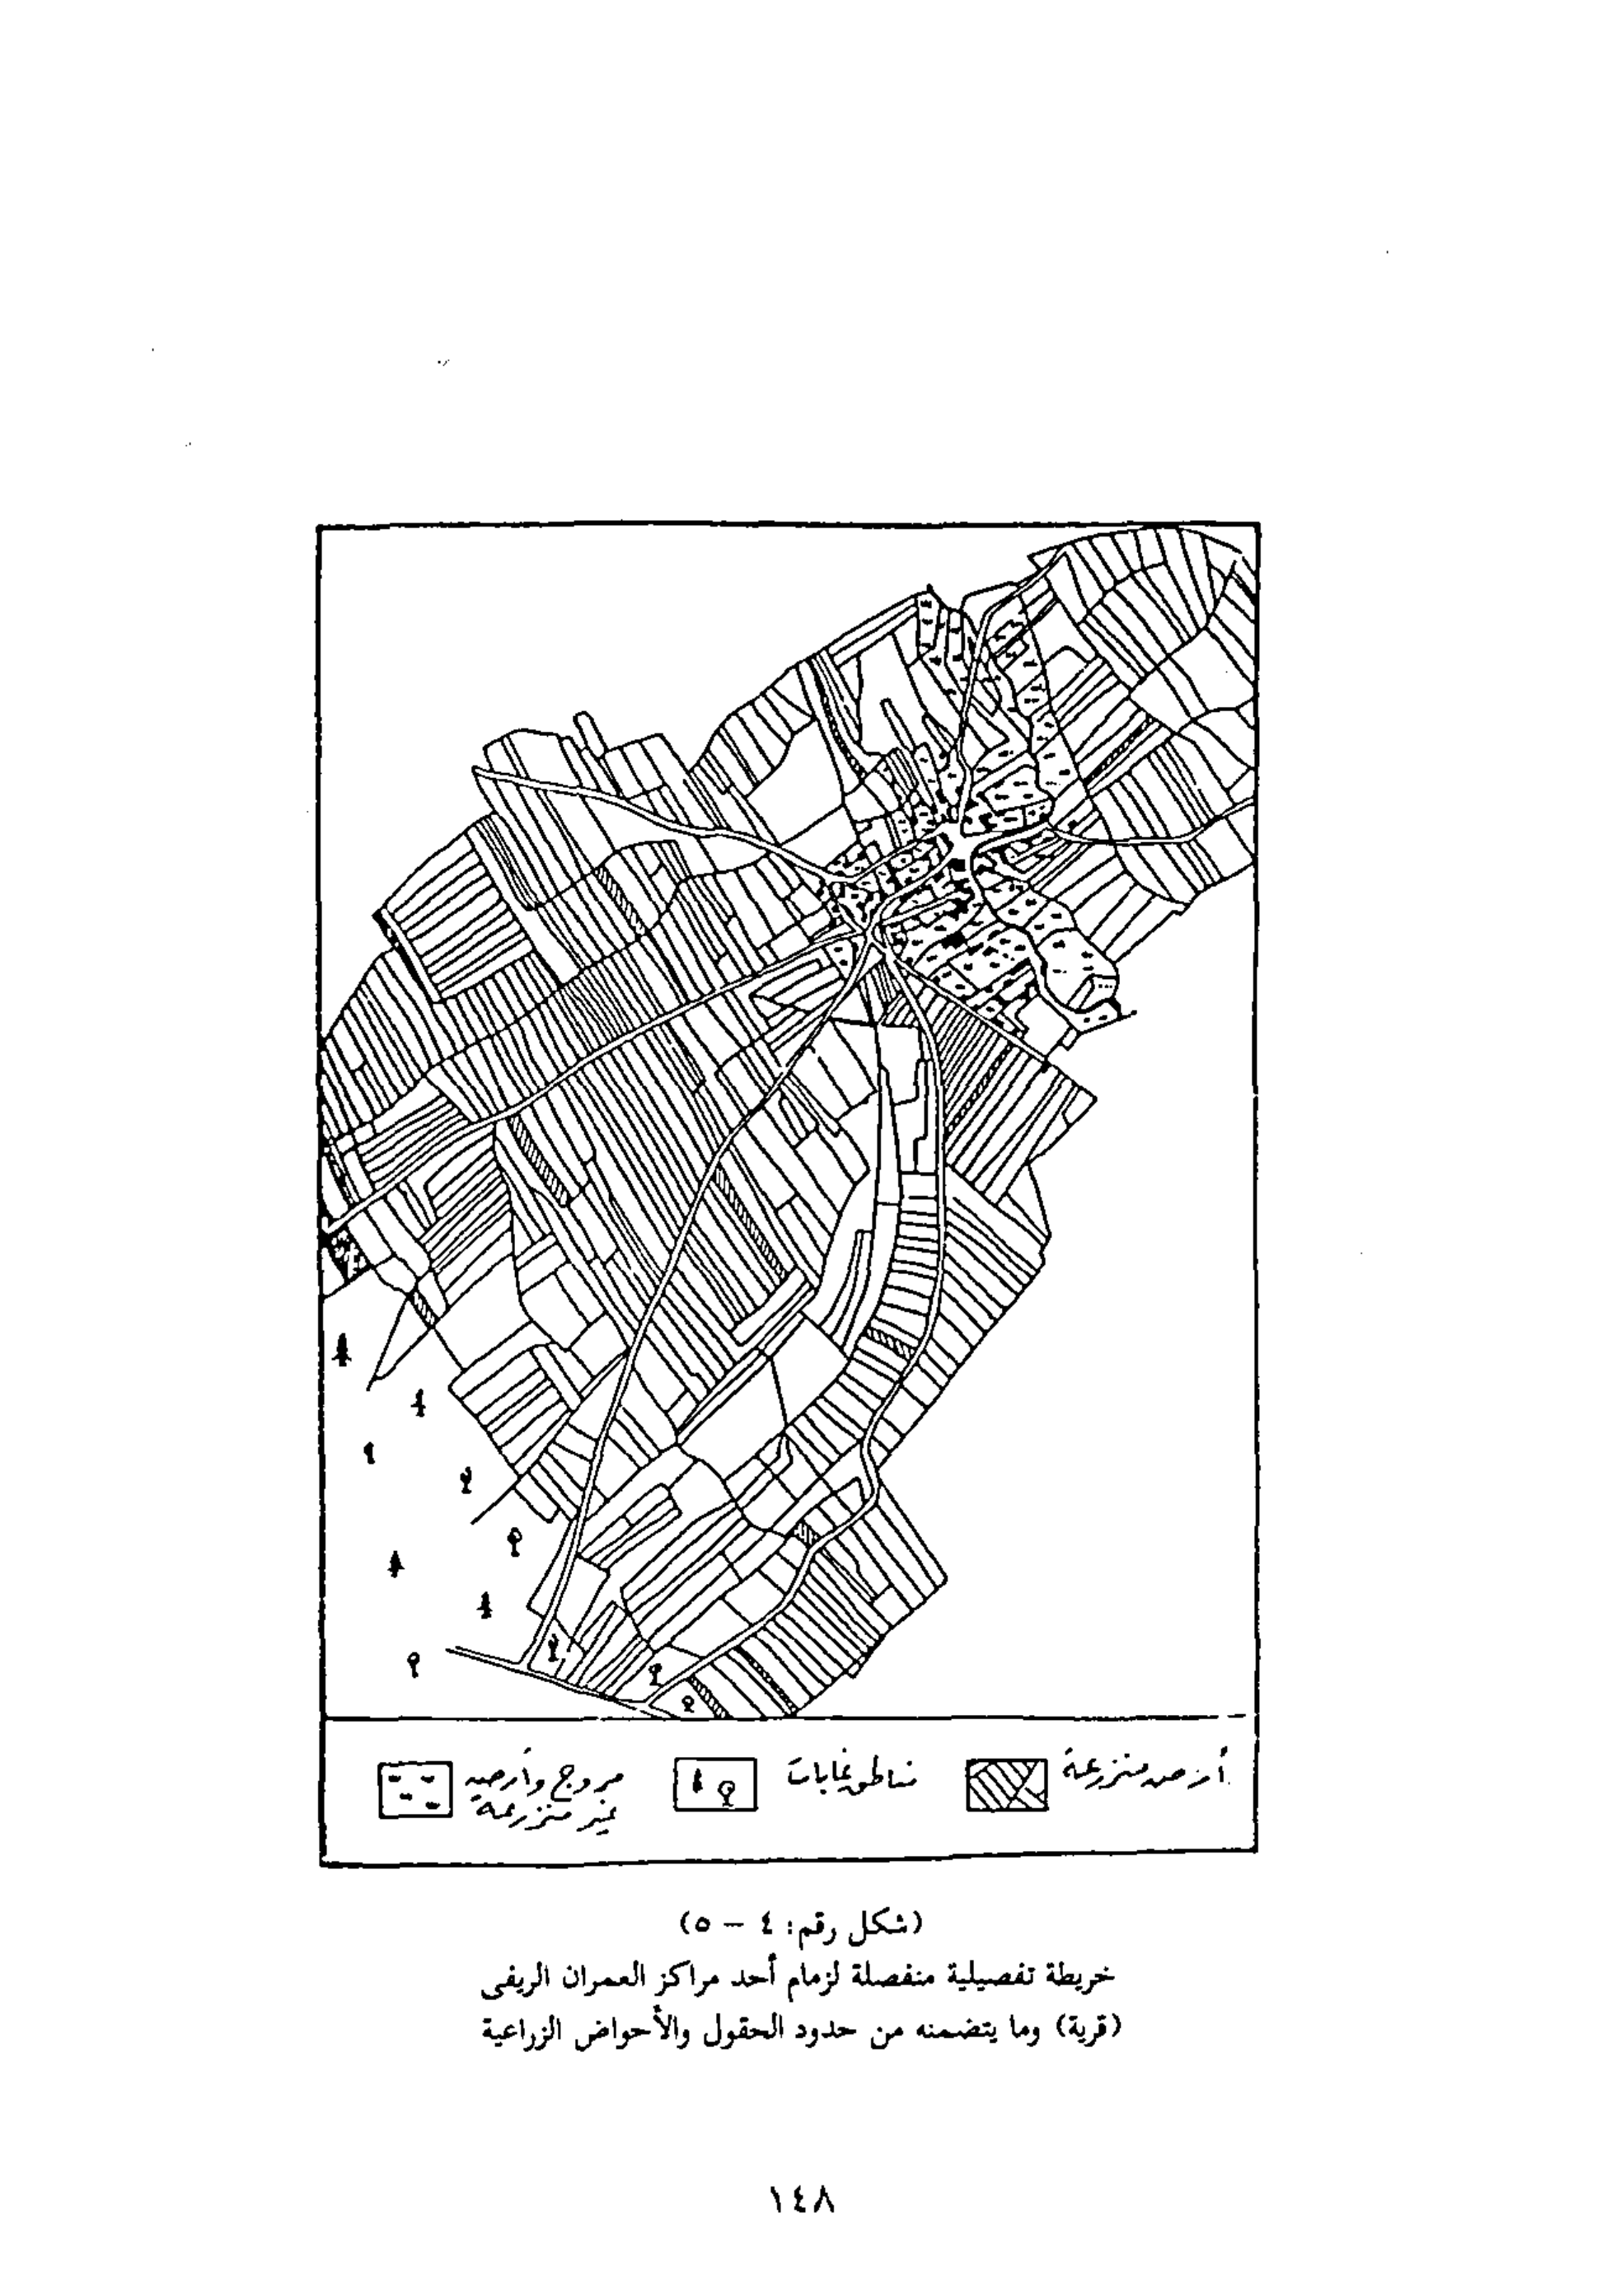 أرض منزرعة
مناطق غابات
مروج وأرضي
غير منزرعة
(شكل رقم: ٤ – ٥)
خريطة تفصيلية منفصلة لزمام أحد مراكز العمران الريفى
(قرية) وما يتضمنه من حدود الحقول والأحواض الزراعية
١٤٨